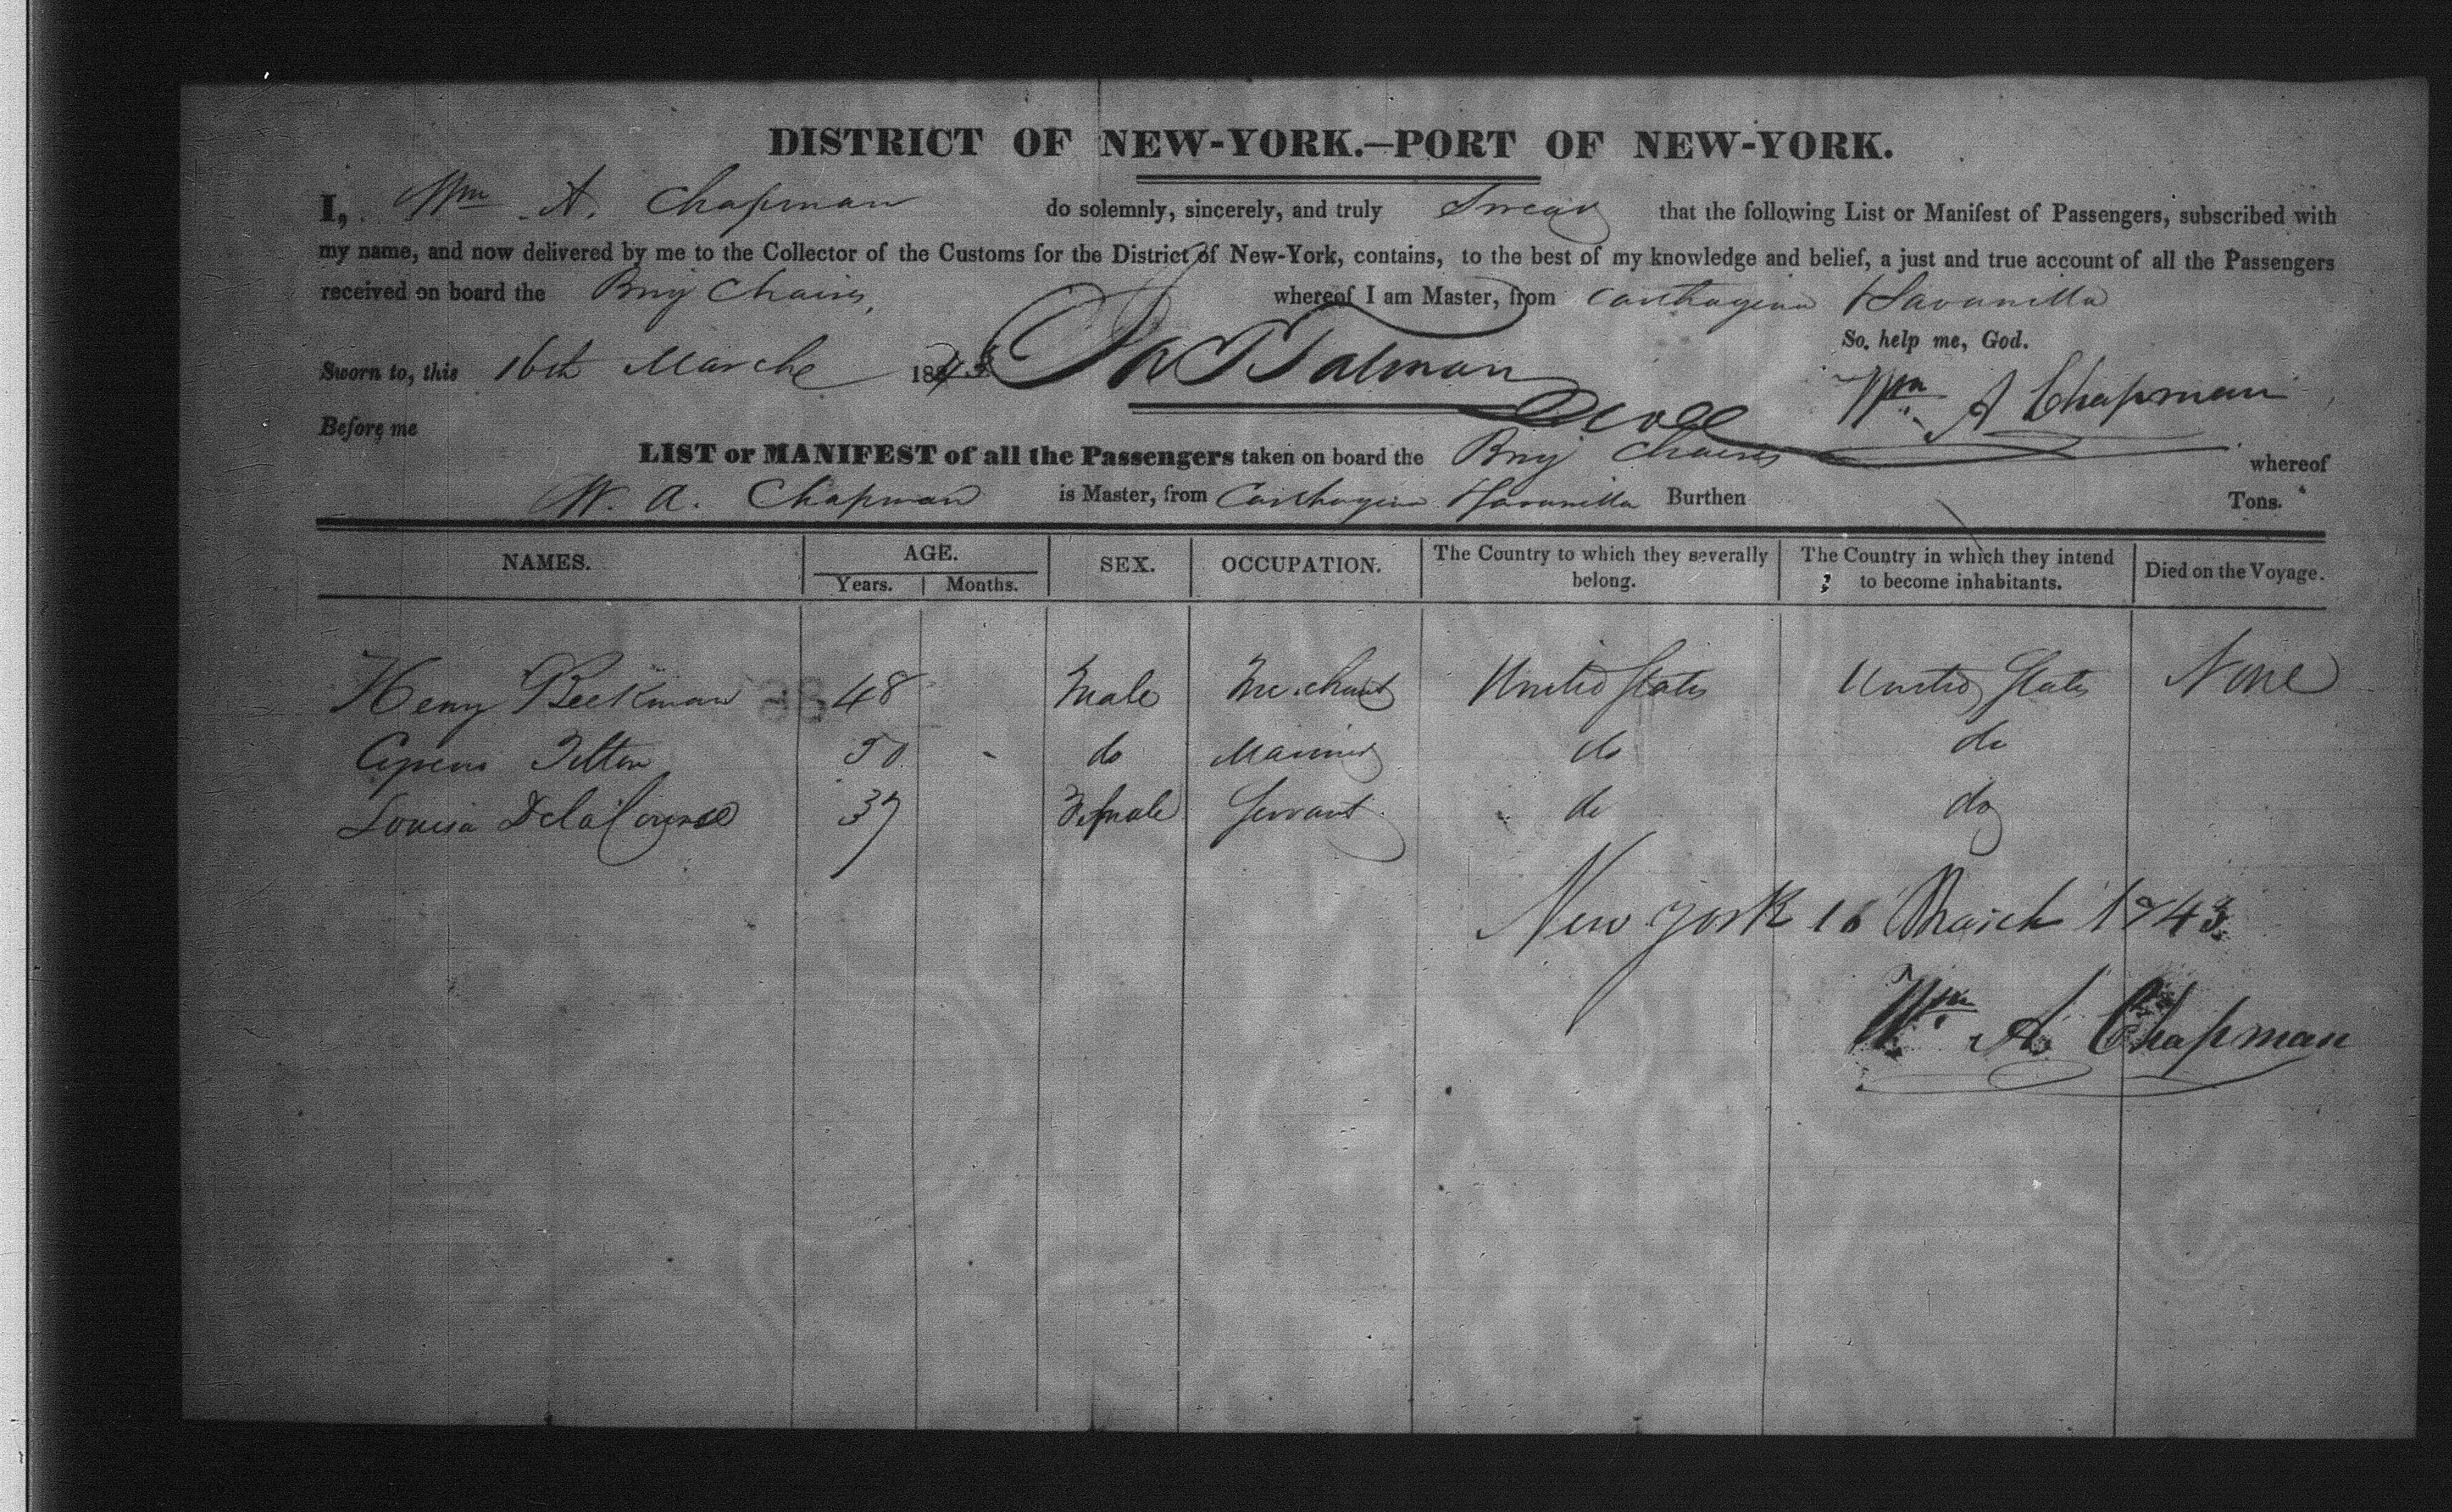 DISTRICT OF NEW-YORK.—PORT OF NEW-YORK.
I, Wm A. Chapman do solemnly, sincerely, and truly Swear that the following List or Manifest of Passengers, subscribed with
my name, and now delivered by me to the Collector of the Customs for the District of New-York, contains, to the best of my knowledge and belief, a just and true account of all the Passengers
received on board the Brig Chaires, whereof I am Master, from Carthagena & Savanilla
So help me, God.
Sworn to, this 16th March 1843 Wm A Chapman
Before me
LIST or MANIFEST of all the Passengers taken on board the Brig Chaires whereof
W. A. Chapman is Master, from Carthagena & Savanilla Burthen Tons.
NAMES. AGE. SEX. OCCUPATION. The Country to which they severally belong. The Country in which they intend to become inhabitants. Died on the Voyage.
Years. Months.
Henry Beekman 48 Male Merchant United States United States None
Tilton 50 - do Mariner do do
Louisa 37 Female Servant do do
New York 16 March 1843
Wm A. Chapman